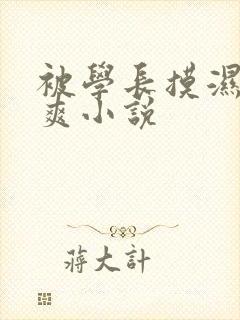 被學長摸濕
爽小説
蔣大計